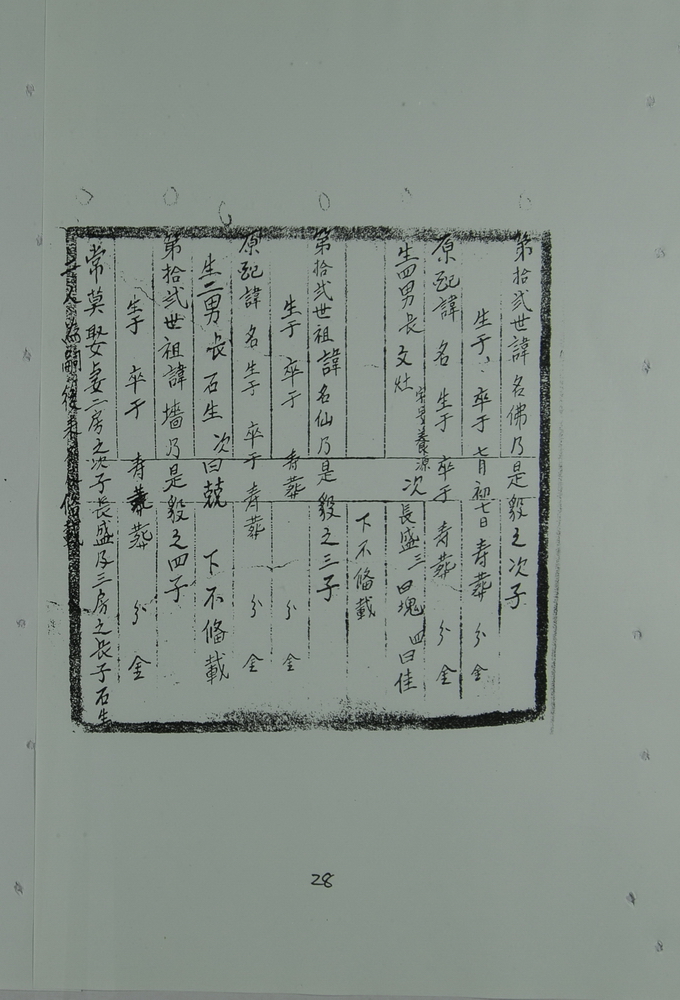 第拾弍世諱名佛乃是毅之次子
生于 卒于七月初七日寿葬 分金
原配諱名生于 卒于 寿葬 分金
生四男長文灶 宋号養源 次長盛三曰塊四曰佳
下不俻載
第拾弍世祖諱名仙乃是毅之三子
生于 卒于 寿葬 分金
原配諱名生于 卒于寿葬 分金
生二男長石生次曰兢 下不俻載
第拾弍世祖諱墻乃是毅之四子
生于 卒于 寿葬 分金
常莫娶妻二房之次子長盛及三房之長子石生
二人為嗣後 俻載
28